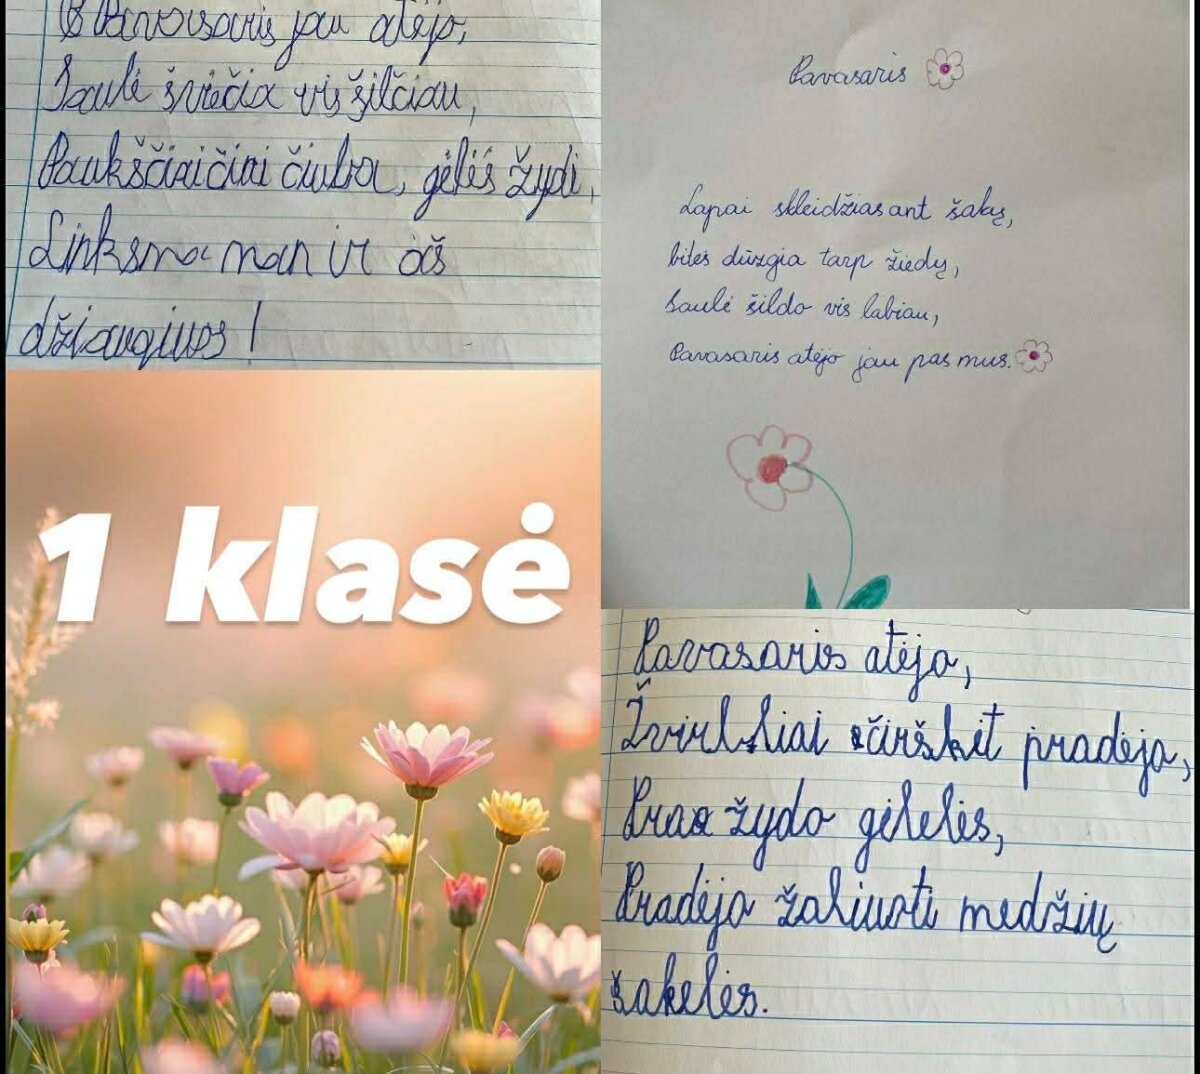 Pavasaris jau atėjo,
Saulė šviečia vis šilčiau,
čiulba, gėlės žydi,
Linksma man ir aš
džiaugiuos!
Pavasaris
Lapai skleidžias ant šakų,
bitės dūzgia tarp žiedų,
Saulė šildo vis labiau,
Pavasaris atėjo jau pas mus.
1 klasė
Pavasaris atėjo,
Žvirbliai pradėjo,
Pražydo gėlelės,
Pradėjo žaliuoti medžių
šakelės.